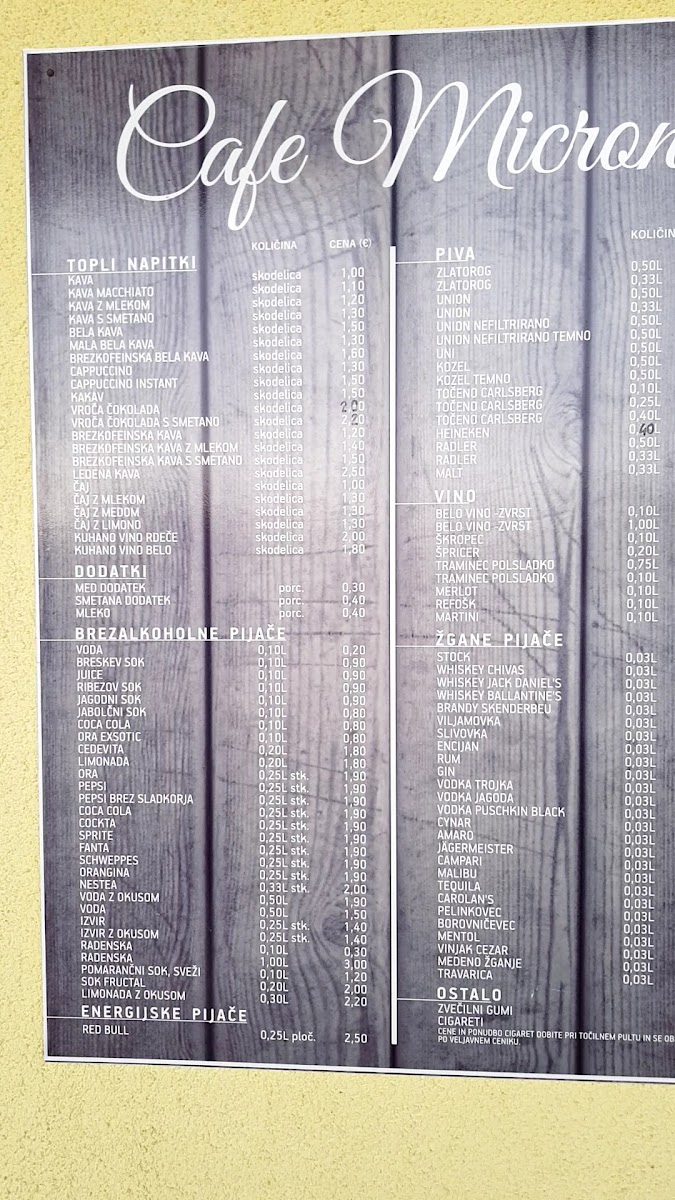 Cafe Micron
KOLIČINA CENA (€)
TOPLI NAPITKI
KAVA skodelica 1,00
KAVA MACCHIATO skodelica 1,10
KAVA Z MLEKOM skodelica 1,20
KAVA S SMETANO skodelica 1,30
BELA KAVA skodelica 1,50
MALA BELA KAVA skodelica 1,30
BREZKOFEINSKA BELA KAVA skodelica 1,60
CAPPUCCINO skodelica 1,30
CAPPUCCINO INSTANT skodelica 1,50
KAKAV skodelica 1,50
VROČA ČOKOLADA skodelica 2,00
VROČA ČOKOLADA S SMETANO skodelica 2,20
BREZKOFEINSKA KAVA skodelica 1,20
BREZKOFEINSKA KAVA Z MLEKOM skodelica 1,40
BREZKOFEINSKA KAVA S SMETANO skodelica 1,50
LEDENA KAVA skodelica 2,50
ČAJ skodelica 1,00
ČAJ Z MLEKOM skodelica 1,30
ČAJ Z MEDOM skodelica 1,30
ČAJ Z LIMONO skodelica 1,30
KUHANO VINO RDEČE skodelica 2,00
KUHANO VINO BELO skodelica 1,80
DODATKI
MED DODATEK porc. 0,30
SMETANA DODATEK porc. 0,40
MLEKO porc. 0,40
BREZALKOHOLNE PIJAČE
VODA 0,10L 0,20
BRESKEV SOK 0,10L 0,90
JUICE 0,10L 0,90
RIBEZOV SOK 0,10L 0,90
JAGODNI SOK 0,10L 0,90
JABOLČNI SOK 0,10L 0,80
COCA COLA 0,10L 0,80
ORA EXSOTIC 0,10L 0,80
CEDEVITA 0,20L 1,80
LIMONADA 0,20L 1,80
ORA 0,25L stk. 1,90
PEPSI 0,25L stk. 1,90
PEPSI BREZ SLADKORJA 0,25L stk. 1,90
COCA COLA 0,25L stk. 1,90
COCKTA 0,25L stk. 1,90
SPRITE 0,25L stk. 1,90
FANTA 0,25L stk. 1,90
SCHWEPPES 0,25L stk. 1,90
ORANGINA 0,25L stk. 1,90
NESTEA 0,33L stk. 2,00
VODA Z OKUSOM 0,50L 1,90
VODA 0,50L 1,50
IZVIR 0,25L stk. 1,40
IZVIR Z OKUSOM 0,25L stk. 1,40
RADENSKA 0,10L 0,30
RADENSKA 1,00L 3,00
POMARANČNI SOK, SVEŽI 0,10L 1,20
SOK FRUCTAL 0,20L 2,00
LIMONADA Z OKUSOM 0,30L 2,20
ENERGIJSKE PIJAČE
RED BULL 0,25L ploč. 2,50
KOLIČIN
PIVA
ZLATOROG 0,50L
ZLATOROG 0,33L
UNION 0,50L
UNION 0,33L
UNION NEFILTRIRANO 0,50L
UNION NEFILTRIRANO TEMNO 0,50L
UNI 0,50L
KOZEL 0,50L
KOZEL TEMNO 0,50L
TOČENO CARLSBERG 0,10L
TOČENO CARLSBERG 0,25L
TOČENO CARLSBERG 0,40L
HEINEKEN 0,40
RADLER 0,50L
RADLER 0,33L
MALT 0,33L
VINO
BELO VINO -ZVRST 0,10L
BELO VINO -ZVRST 1,00L
ŠKROPEC 0,10L
ŠPRICER 0,20L
TRAMINEC POLSLADKO 0,75L
TRAMINEC POLSLADKO 0,10L
MERLOT 0,10L
REFOŠK 0,10L
MARTINI 0,10L
ŽGANE PIJAČE
STOCK 0,03L
WHISKEY CHIVAS 0,03L
WHISKEY JACK DANIEL'S 0,03L
WHISKEY BALLANTINE'S 0,03L
BRANDY SKENDERBEU 0,03L
VILJAMOVKA 0,03L
SLIVOVKA 0,03L
ENCIJAN 0,03L
RUM 0,03L
GIN 0,03L
VODKA TROJKA 0,03L
VODKA JAGODA 0,03L
VODKA PUSCHKIN BLACK 0,03L
CYNAR 0,03L
AMARO 0,03L
JÄGERMEISTER 0,03L
CAMPARI 0,03L
MALIBU 0,03L
TEQUILA 0,03L
CAROLAN'S 0,03L
PELINKOVEC 0,03L
BOROVNIČEVC 0,03L
MENTOL 0,03L
VINJAK CEZAR 0,03L
MEDENO ŽGANJE 0,03L
TRAVARICA 0,03L
OSTALO
ZVEČILNI GUMI
CIGARETI
CENE IN PONUDBO CIGARET DOBITE PRI TOČILNEM PULTU IN SE OB
PO VELJAVNEM CENIKU.